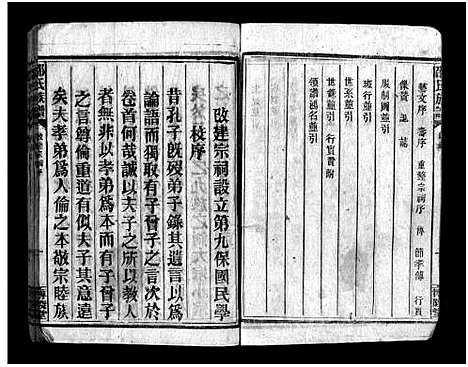 藝文序 壽序 重整宗祠序 傳 節孝傳 行實
像贊 墓誌
服制圖並引
班行並引
世系並引
世錄並引 行實費附
領譜鴻名並引
改建宗祠設立第九保國民學
校序
昔孔子既歿弟子錄其遺言以為
論語而獨取有子曾子之言次於
卷首何哉誠以夫子之所以教人
者無非以孝弟為本而有子曾子
之言尊倫重道有似夫子其意違
矣夫孝弟為人倫之本敬宗睦族